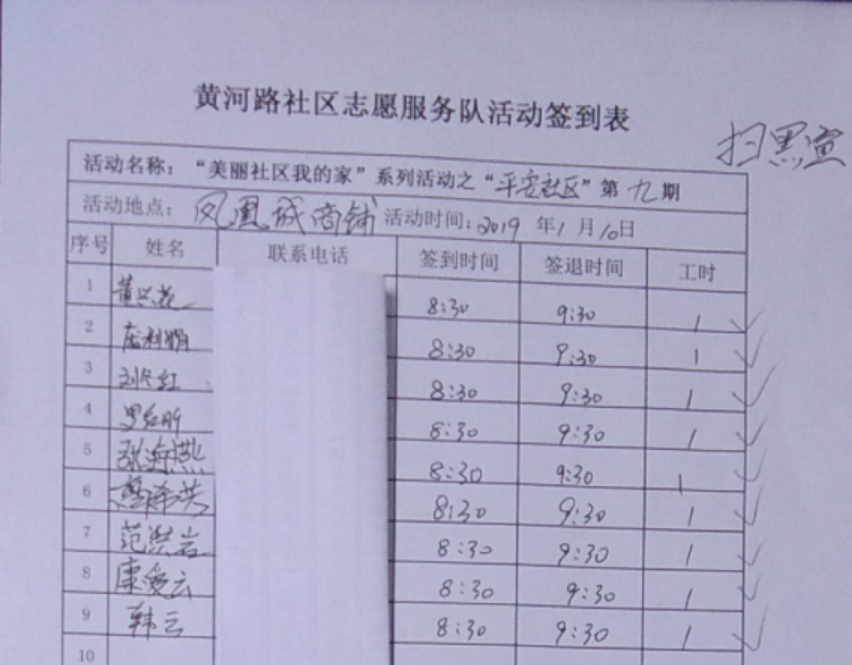 黄河路社区志愿服务队活动签到表
扫黑宣
活动名称：“美丽社区我的家”系列活动之“平安社区”第九期
活动地点：凤凰城商铺 活动时间：2019年1月10日
序号 姓名 联系电话 签到时间 签退时间 工时
1 8:30 9:30 1
2 8:30 9:30 1
3 8:30 9:30 1
4 8:30 9:30 1
5 张海燕 8:30 9:30 1
6 8:30 9:30 1
7 范洪岩 8:30 9:30 1
8 康爱云 8:30 9:30 1
9 韩云 8:30 9:30 1
10